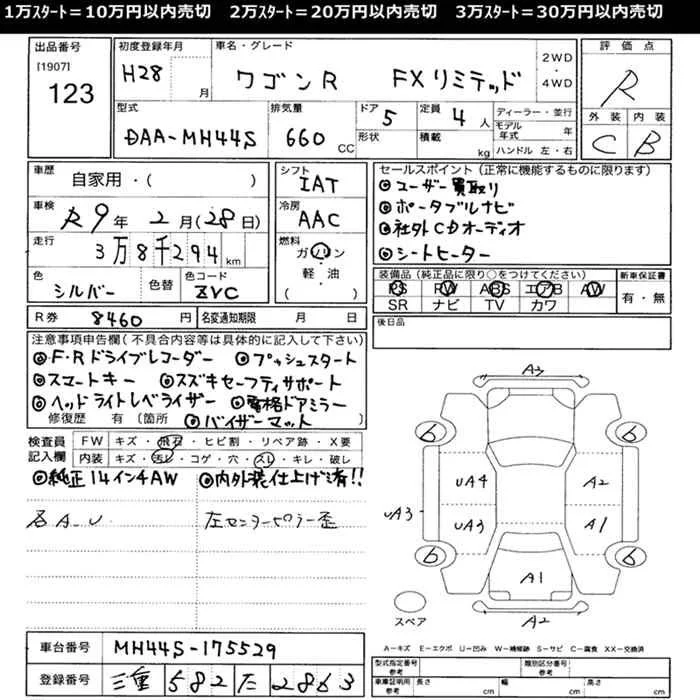 1万スタート＝10万円以内売切　2万スタート＝20万円以内売切　3万スタート＝30万円以内売切
出品番号 初度登録年月 車名・グレード 評価点
[1907] 123
H28 月 ワゴンR FXリミテッド 2WD・4WD R
型式 排気量 ドア 5 定員 4人 ディーラー・並行 外装 内装
DAA-MH44S 660CC 形状 積載 kg モデル年式 年 C B
ハンドル 左・右
車歴 自家用・( ) シフト IAT セールスポイント(正常に機能するものに限ります)
◎ユーザー買取り
車検 R9年2月(28日) 冷房 AAC ◎ポータブルナビ
◎社外CDオーディオ
走行 3万8千294km 燃料 ガソリン・軽油 ( ) ◎シートヒーター
色 シルバー 色替 色コード ZVC 装備品(純正品に限り○をつけてください) 新車保証書
PS PW ABS エアB AW 有・無
SR ナビ TV カワ
R券 8460円 名変通知期限 月 日 後日品
注意事項申告欄(不具合内容等は具体的に記入して下さい)
◎F・Rドライブレコーダー ◎プッシュスタート
◎スマートキー ◎スズキセーフティサポート
◎ヘッドライトレベライザー ◎電格ドアミラー
修復歴 有 〔箇所 ◎バイザーマット 〕
検査員記入欄 FW キズ・飛石・ヒビ割・リペア跡・X要
内装 キズ・汚レ・コゲ・穴・スレ・キレ・破レ
◎純正14インチAW ◎内外装仕上げ済!!
各A-U 左センターピラー歪
A3
6 6
UA4 A2
UA3 UA3 A1
6 6
A1
スペア A2
A－キズ E－エクボ U－凹み W－補修跡 S－サビ C－腐食 XX－交換済
車台番号 MH44S-175529
登録番号 三重 582 た 2863
型式指定番号 参考 類別区分番号 参考
車庫証明用 参考 長さ cm 幅 cm 高さ cm